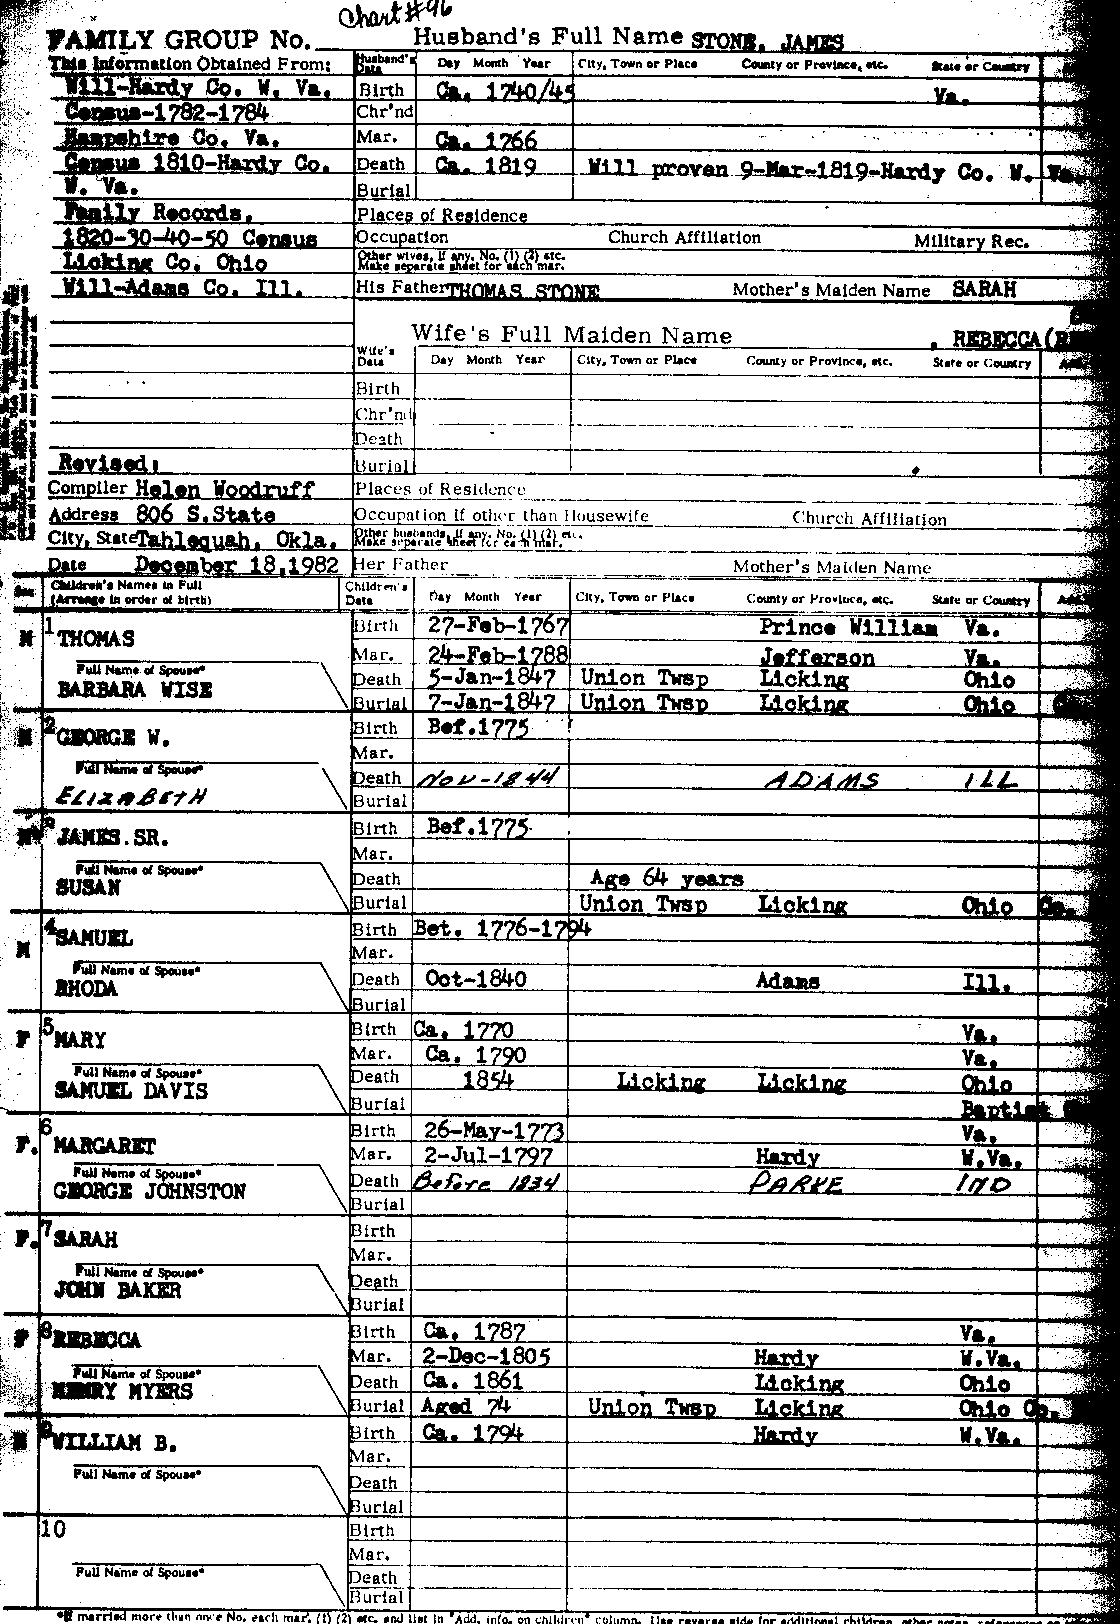 Chart #96
FAMILY GROUP No. Husband's Full Name STONE, JAMES
This Information Obtained From: Husband's Data Day Month Year City, Town or Place County or Province, etc. State or Country
Will-Hardy Co. W. Va. Birth Ca. 1740/45 Va.
Census-1782-1784 Chr'nd
Hampshire Co. Va. Mar. Ca. 1766
Census 1810-Hardy Co. Death Ca. 1819 Will proven 9-Mar-1819-Hardy Co. W. Va.
W. Va. Burial
Family Records. Places of Residence
1820-30-40-50 Census Occupation Church Affiliation Military Rec.
Licking Co. Ohio Other wives, if any. No. (1) (2) etc. Make separate sheet for each mar.
Will-Adams Co. Ill. His Father THOMAS STONE Mother's Maiden Name SARAH
Wife's Full Maiden Name , REBECCA
Wife's Data Day Month Year City, Town or Place County or Province, etc. State or Country
Birth
Chr'nd
Death
Revised: Burial
Compiler Helen Woodruff Places of Residence
Address 806 S.State Occupation if other than Housewife Church Affiliation
City, State Tahlequah, Okla. Other husbands, if any. No. (1) (2) etc. Make separate sheet for each mar.
Date December 18,1982 Her Father Mother's Maiden Name
Sex Children's Names in Full (Arrange in order of birth) Children's Data Day Month Year City, Town or Place County or Province, etc. State or Country
M 1 THOMAS Birth 27-Feb-1767 Prince William Va.
Mar. 24-Feb-1788 Jefferson Va.
Full Name of Spouse* Death 5-Jan-1847 Union Twsp Licking Ohio
BARBARA WISE Burial 7-Jan-1847 Union Twsp Licking Ohio
M 2 GEORGE W. Birth Bef.1775
Mar.
Full Name of Spouse* Death Nov-1844 ADAMS ILL
ELIZABETH Burial
M 3 JAMES.SR. Birth Bef.1775
Mar.
Full Name of Spouse* Death Age 64 years
SUSAN Burial Union Twsp Licking Ohio
M 4 SAMUEL Birth Bet. 1776-1794
Mar.
Full Name of Spouse* Death Oct-1840 Adams Ill.
RHODA Burial
F 5 MARY Birth Ca. 1770 Va.
Mar. Ca. 1790 Va.
Full Name of Spouse* Death 1854 Licking Licking Ohio
SAMUEL DAVIS Burial Baptist
F. 6 MARGARET Birth 26-May-1773 Va.
Mar. 2-Jul-1797 Hardy W.Va.
Full Name of Spouse* Death Before 1834 PARKE IND
GEORGE JOHNSTON Burial
F. 7 SARAH Birth
Mar.
Full Name of Spouse* Death
JOHN BAKER Burial
F 8 REBECCA Birth Ca. 1787 Va.
Mar. 2-Dec-1805 Hardy W.Va.
Full Name of Spouse* Death Ca. 1861 Licking Ohio
HENRY MYERS Burial Aged 74 Union Twsp Licking Ohio
M 9 WILLIAM B. Birth Ca. 1794 Hardy W.Va.
Mar.
Full Name of Spouse* Death
Burial
10 Birth
Mar.
Full Name of Spouse* Death
Burial
*If married more than once No. each mar. (1) (2) etc. and list in "Add. info. on children" column. Use reverse side for additional children, other notes,